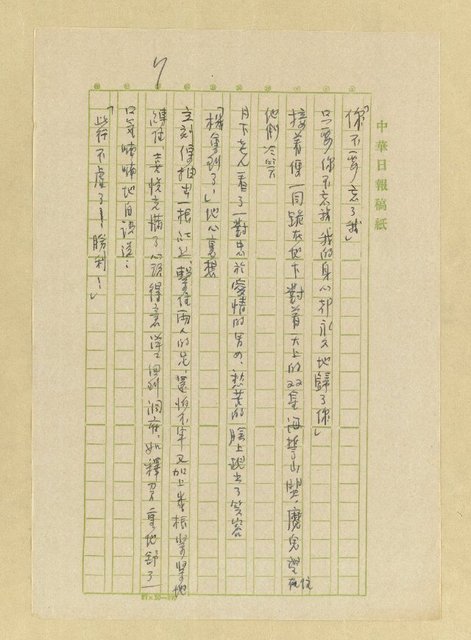 中華日報稿紙
7
「你不要忘了我」
只要你不忘我我的身心却永久地歸了你」
接着便一同跪在地下對着天上的双星海誓山盟，魔鬼望住在
他倆冷笑
月下老人看了一對忠於愛情的男女，愁苦的臉上跳出了笑容
「機會到了，」他心裏想
立刻便抽出一根紅 繫住兩人的 還怕不牢又加上 根緊緊地
縛住，喜悅充滿了心頭得意洋洋回到洞府，如釋 重地舒了一
口氣喃喃地自語道：
「此行不虛了！勝利！」